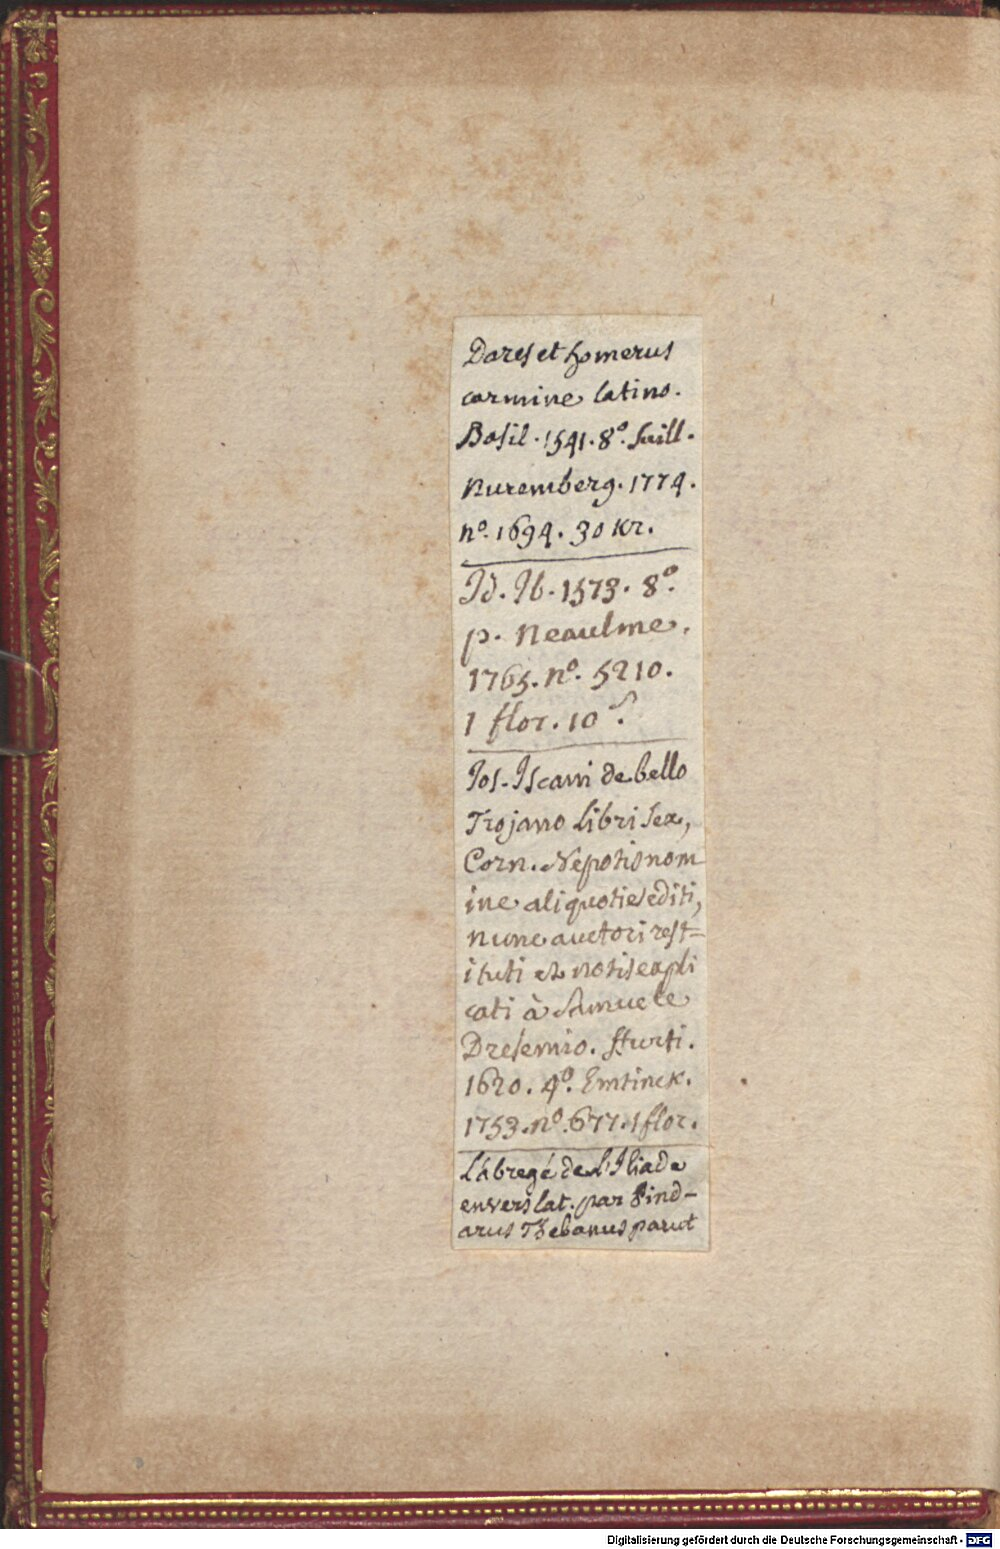 Dares et homerus
carmine latino.
Basil. 1541. 8º. Suill.
Nuremberg. 1774.
nº. 1694. 30 Kr.
Id. Ib. 1573. 8º.
p. Neaulme.
1765. nº. 5210.
1 flor. 10 s.
Jos. Iscani de bello
Trojano libri sex,
Corn. Nepotis nom
ine aliquoties editi,
nunc auctori rest=
ituti et notis expli
cati à Samuele
Dresemio. ffurti.
1620. 4º. Emtinck.
1753. nº. 677. 1 flor.
L'abregé de l'Iliade
en vers lat. par Pind-
arus Thebanus parut
Digitalisierung gefördert durch die Deutsche Forschungsgemeinschaft - DFG